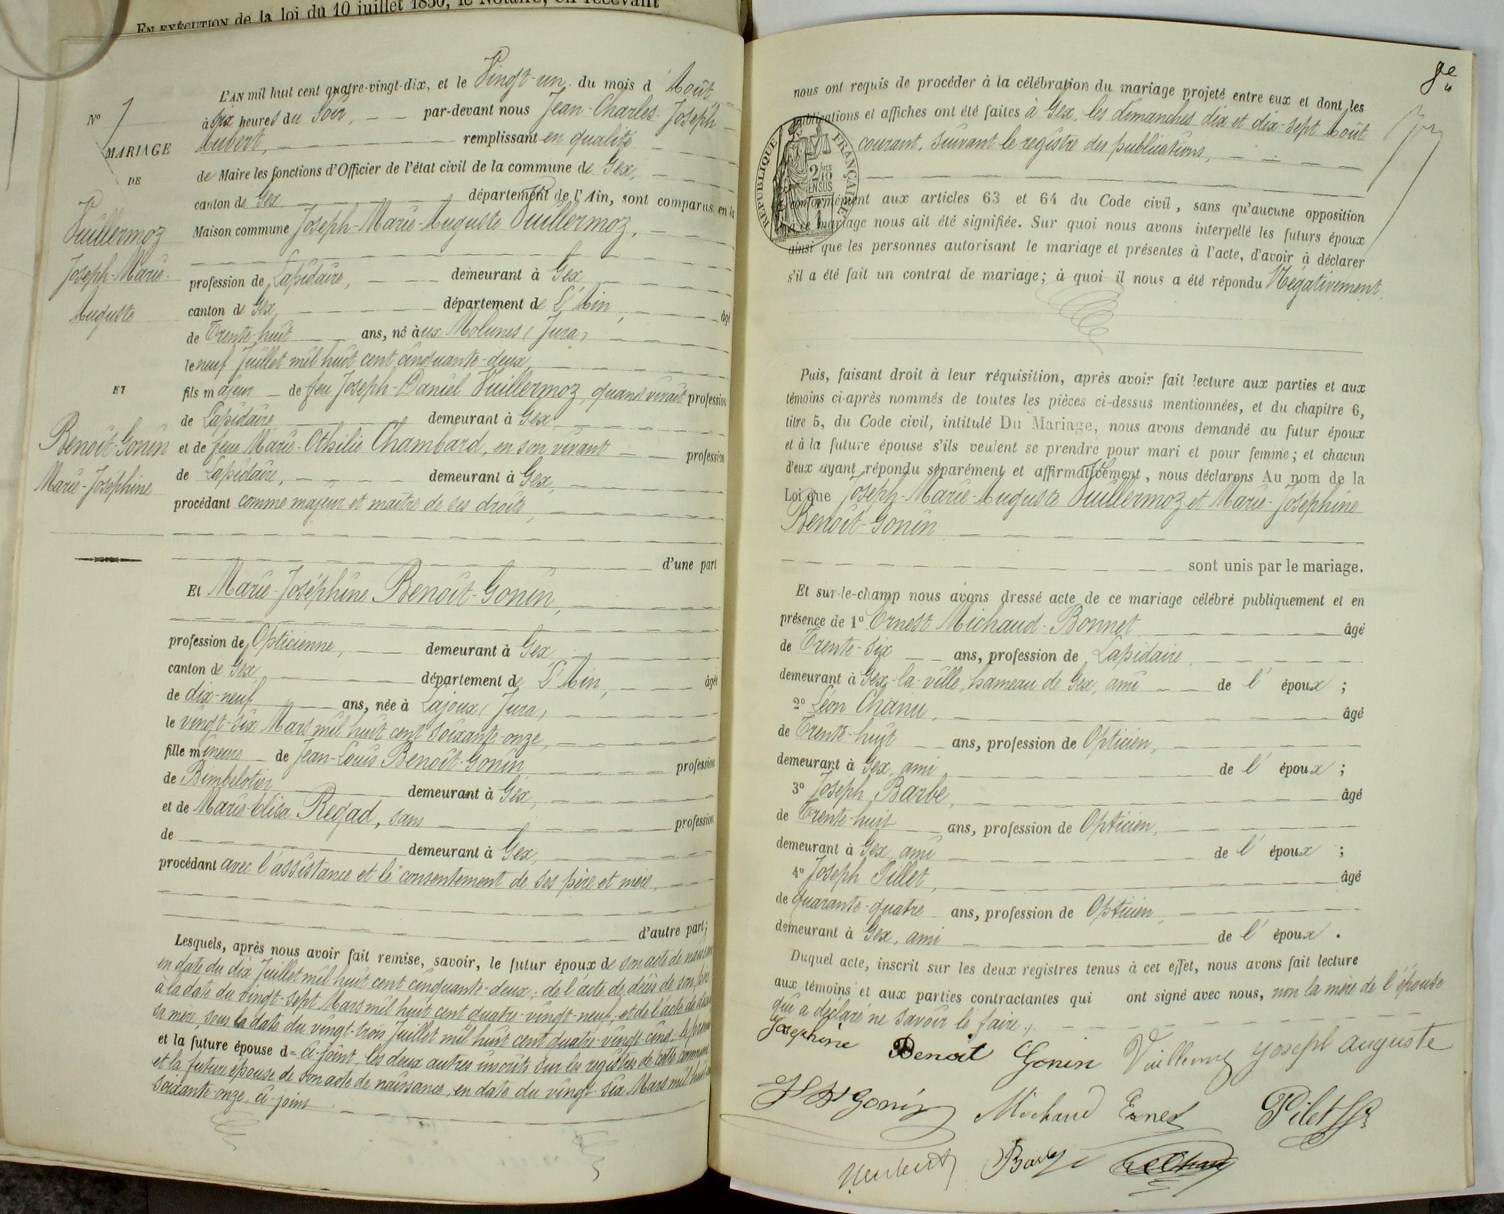 EN EXÉCUTION de la loi du 10 juillet 1850, le Notaire, en recevant
L'AN mil huit cent quatre-vingt-dix, et le Vingt-un du mois d'Août
à Six heures du Soir, par-devant nous Jean-Charles-Joseph
Hubert, remplissant en qualité
de Maire les fonctions d'Officier de l'état civil de la commune de Gex,
canton de Gex département de l'Ain, sont comparus en la
Maison commune Joseph-Marie-Auguste Vuillermoz,
profession de Lapidaire, demeurant à Gex,
canton de Gex, département de L'Ain, âgé
de Trente-huit ans, né aux Molunes (Jura)
le neuf Juillet mil huit cent cinquante-deux,
fils majeur de feu Joseph-Daniel Vuillermoz, quand vivait profession
de Lapidaire demeurant à Gex
et de feue Marie-Othilie Chambard, en son vivant profession
de Lapidaire, demeurant à Gex,
procédant comme majeur et maître de ses droits,
d'une part
N° 7
MARIAGE
DE
Vuillermoz
Joseph-Marie-
Auguste
ET
Benoît-Gonin
Marie-Joséphine
Et Marie-Joséphine Benoît-Gonin,
profession de Opticienne, demeurant à Gex
canton de Gex, département de L'Ain, âgée
de dix-neuf ans, née à Lajoux (Jura)
le vingt-six Mars mil huit cent soixante-onze,
fille mineure de Jean-Louis Benoît-Gonin profession
de Bimbelotier demeurant à Gex,
et de Marie-Elisa Regad, sans profession
de demeurant à Gex,
procédant avec l'assistance et le consentement de ses père et mère,
d'autre part;
Lesquels, après nous avoir fait remise, savoir, le futur époux de son acte de naissance
en date du dix Juillet mil huit cent cinquante-deux; de l'acte de décès de son père
à la date du vingt-sept Mars mil huit cent quatre-vingt-neuf, et de l'acte de décès
sa mère, sous la date du vingt-trois Juillet mil huit cent quatre-vingt-cinq; le premier
ci-joint les deux autres inscrits sur les registres de cette commune
et la future épouse de son acte de naissance, en date du vingt-six Mars mil huit cent
soixante-onze, ci-joint
9e
nous ont requis de procéder à la célébration du mariage projeté entre eux et dont les
publications et affiches ont été faites à Gex, les dimanches dix et dix-sept Août
courant, suivant le registre des publications,
RÉPUBLIQUE FRANÇAISE
conformément aux articles 63 et 64 du Code civil, sans qu'aucune opposition
mariage nous ait été signifiée. Sur quoi nous avons interpellé les futurs époux
ainsi que les personnes autorisant le mariage et présentes à l'acte, d'avoir à déclarer
s'il a été fait un contrat de mariage; à quoi il nous a été répondu Négativement.
Puis, faisant droit à leur réquisition, après avoir fait lecture aux parties et aux
témoins ci-après nommés de toutes les pièces ci-dessus mentionnées, et du chapitre 6,
titre 5, du Code civil, intitulé Du Mariage, nous avons demandé au futur époux
et à la future épouse s'ils veulent se prendre pour mari et pour femme; et chacun
d'eux ayant répondu séparément et affirmativement, nous déclarons Au nom de la
Loi que Joseph-Marie-Auguste Vuillermoz et Marie-Joséphine
Benoît-Gonin
sont unis par le mariage.
Et sur-le-champ nous avons dressé acte de ce mariage célébré publiquement et en
présence de 1° Ernest Michaud-Bonnet âgé
de Trente-six ans, profession de Lapidaire
demeurant à Gex-la-ville, hameau de Gex, ami de l'époux;
2° Léon Chanu, âgé
de Trente-huit ans, profession de Opticien,
demeurant à Gex, ami de l'époux;
3° Joseph Barbe, âgé
de Trente-huit ans, profession de Opticien,
demeurant à Gex, ami de l'époux;
4° Joseph Pillet, âgé
de quarante-quatre ans, profession de Opticien,
demeurant à Gex, ami de l'époux.
Duquel acte, inscrit sur les deux registres tenus à cet effet, nous avons fait lecture
aux témoins et aux parties contractantes qui ont signé avec nous, non la mère de l'épouse
qui a déclaré ne savoir le faire,
Josephine Benoit Gonin Vuillermoz Joseph Auguste
Gonin Michaud Ernest Pilet
Barbe